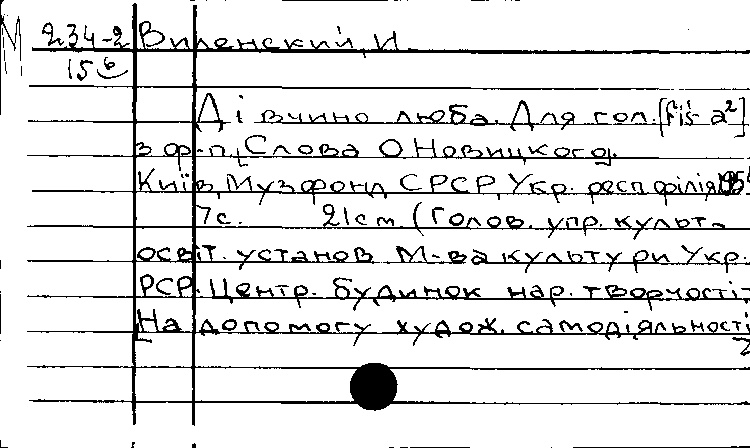 М 234-2 Виленский, И.
15 б
Дiвчино люба. Для гол. [fis-a²]
з ф-п. [Слова О. Новицкого].
Київ, Музфонд СРСР, Укр. респ філія, 195
7с. 21см. (Голов. упр. культ-
освіт. установ М-ва культури Укр.
РСР. Центр. будинок нар. творчості.
[На допомогу худож. самодіяльності